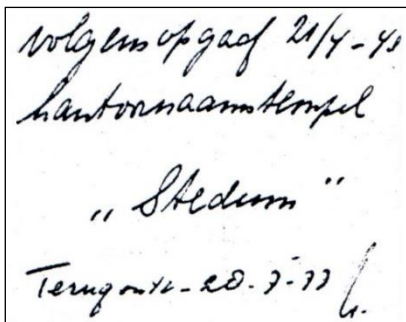 volgens opgaaf 21/4-43
kantoornaamstempel
„ Stedum "
Terugontv. - 20-7-77